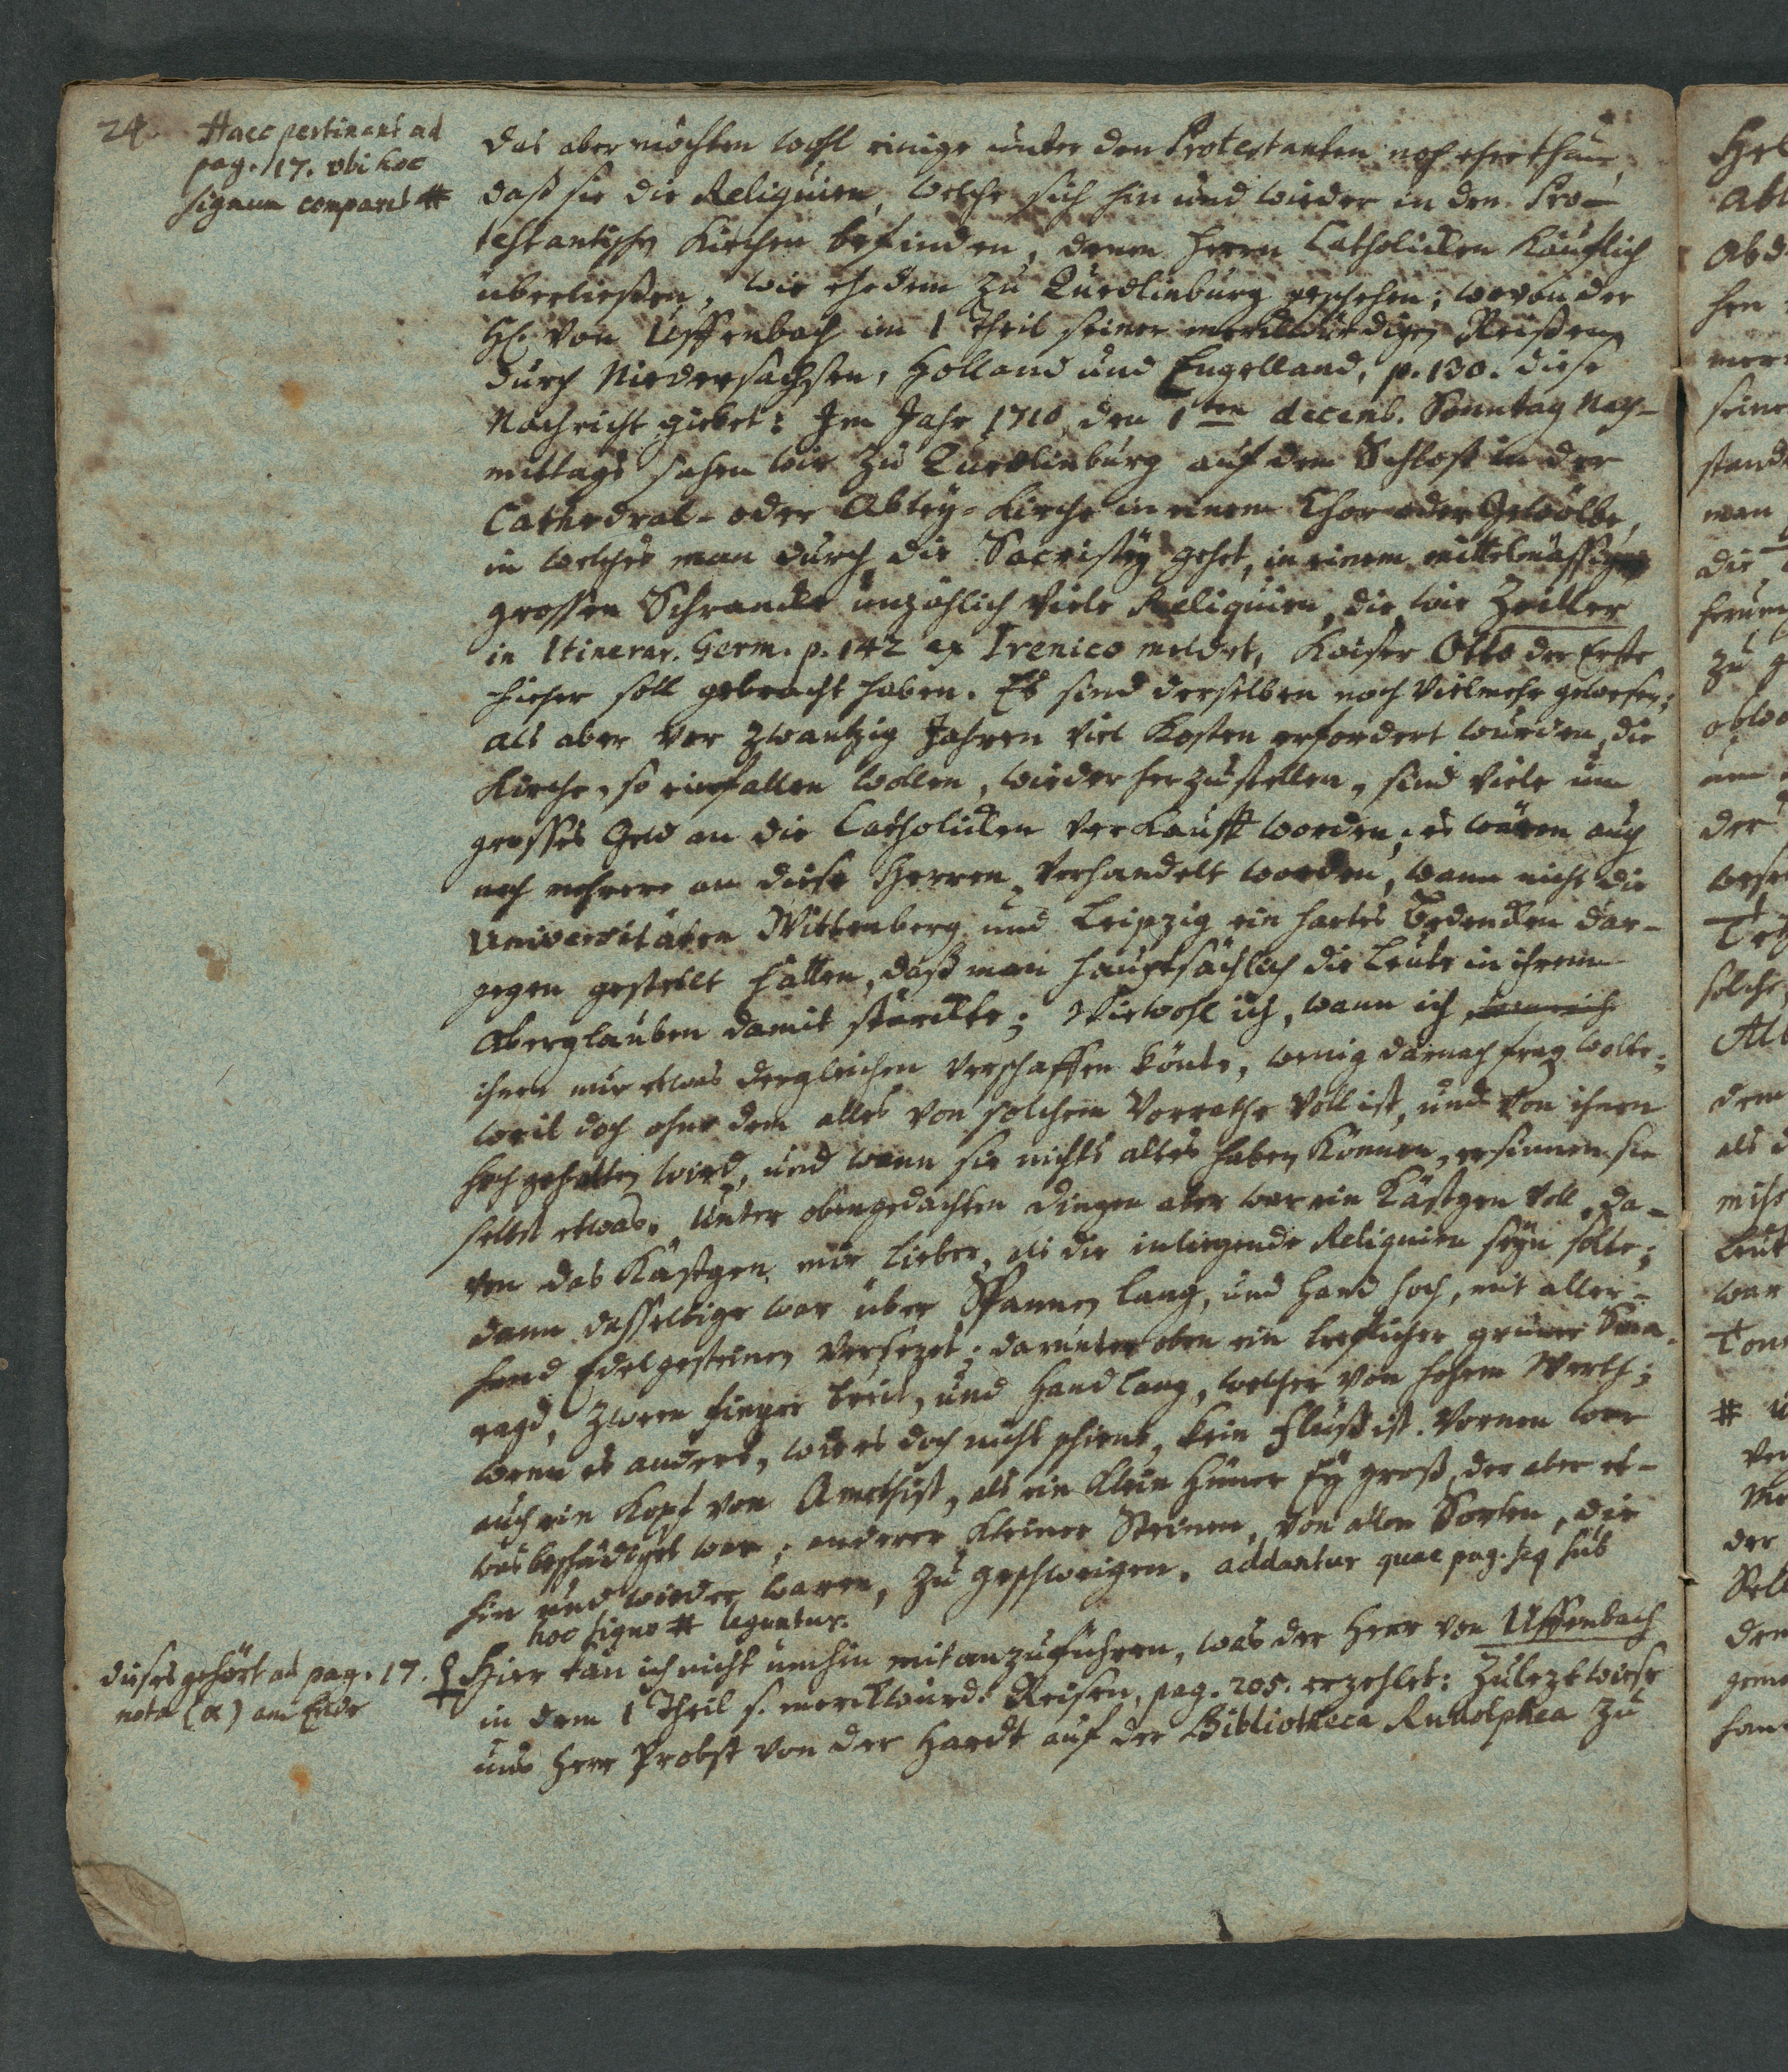 24. Haec pertinent ad
pag. 17. vbi hoc
signum comparet #
das aber möchten wohl einige unter den Protestanten noch ehe thun,
daß sie die Reliquien, welche sich hin und wieder in den Pro-
testantischen Kirchen befinden, denen Herrn Catholicken käuflich
überließen, wie ehedem zu Quedlinburg geschehen; wovon der
H. von Uffenbach im 1 Theil seiner merckwürdigen Reisen
durch Niedersachsen, Holland und Engelland, p. 130. diese
Nachricht giebet: Im Jahr 1710, den 1ten decemb. Sonntag Nach-
mittags sahen wir zu Quedlinburg auf dem Schloß in der
Cathedral- oder Abtey-Kirche in einem Chor oder Gewölbe,
in welches man durch die Sacristey gehet, in einem mittelmässigen
grossen Schrancke unzählich viele Reliquien, die wie Zeiller
in Itinerar. Germ. p. 142 ex Irenico meldet, Kaiser Otto der Erste
hieher soll gebracht haben. Es sind derselben noch vielmehr gewesen;
als aber vor zwantzig Jahren viel Kosten erfordert wurden, die
Kirche, so einfallen wollen, wieder herzustellen, sind viele um
grosses Geld an die Catholicken verkaufft worden; es wären auch
noch mehrere an diese Herren verhandelt worden, wann nicht die
Universitäten Wittenberg und Leipzig ein hartes Bedencken dar-
gegen gestellt hätten, daß man hauptsächlich die Leute in ihrem
Aberglauben damit stärckte; Wiewohl ich, wann ich
ihnen nur etwas dergleichen verschaffen könte, wenig darnach frag. wolte;
weil doch ohne dem alles von solchem Vorrathe voll ist, und von ihnen
hoch gehalten wird, und wann sie nichts altes haben können, ersinnen sie
selbst etwas. Unter obengedachten Dingen aber war ein Kästgen voll, da-
von das Kästgen mir lieber, als die inliegende Reliquien seyn solte;
dann dasselbige war über Spannen lang, und Hand hoch, mit aller-
hand Edelgesteinen versezet; darunter oben ein trefflicher grüner Sma-
ragd, zween Finger breit, und Hand lang, welcher von hohem Werth;
wenn es anders, wie es doch nicht schiene, kein Fluß ist. Vornen war
auch ein Kopf von Amethist, als ein klein Hüner Ey groß, der aber et-
was beschädiget war; anderer kleiner Steinen, von allen Sorten, die
hin und wieder waren, zu geschweigen. addantur quae pag. seq sub
hoc signo # leguntur.
dieses gehört ad pag. 17.
nota (α) am Ende
Hier kan ich nicht umhin mit anzuführen, was der Herr von Uffenbach
in dem 1 Theil s. merckwürd. Reisen, pag. 205. erzehlet: Zulezt wiese
uns Herr Probst von der Hardt auf der Bibliotheca Rudolphea zu